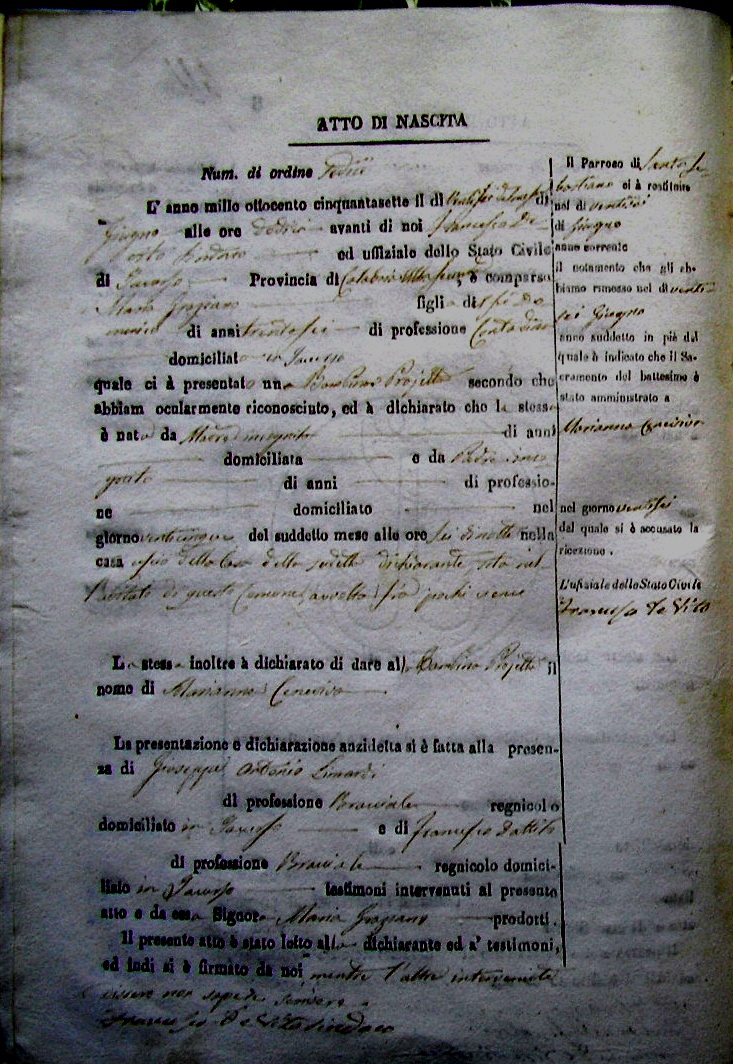 ATTO DI NASCITA
Num. di ordine
L' anno mille ottocento cinquantasette il dì Ventisei di
Giugno alle ore Dodici avanti di noi Francesco De
Vito Sindaco ed uffiziale dello Stato Civile
di Jacurso Provincia di Calabria , è comparsa
Maria Graziano figlia di
di anni trentasei di professione Contadina
domiciliat in Jacurso
quale ci à presentato una Bambina Projetta secondo che
abbiam ocularmente riconosciuto, ed à dichiarato che la stessa
è nata da Madre incognita di anni
domiciliata e da Padre inco
gnito di anni di professio-
ne domiciliato nel
giorno venticinque del suddetto mese alle ore sei di notte nella
casa detta dichiarante sita nel
di questo Comune, avvolta fra pochi
La stessa inoltre à dichiarato di dare al Projetta il
nome di Marianna
La presentazione e dichiarazione anzidetta si è fatta alla presen-
za di Giuseppe Antonio
di professione Bracciale regnicolo
domiciliato in Jacurso e di Francesco Dattilo
di professione Bracciale regnicolo domici-
liato in Jacurso testimoni intervenuti al presente
atto e da essa Signora Maria Graziano prodotti.
Il presente atto è stato letto alla dichiarante ed a' testimoni,
ed indi si è firmato da noi mentre l'altri intervenuti
dissero non sapere scrivere
Francesco De Vito Sindaco
Il Parroco di Santo Se
bastiano ci à restituito
nel dì ventisei
di Giugno
anno corrente
il notamento che gli ab-
biamo rimesso nel dì venti
sei Giugno
anno suddetto in piè del
quale è indicato che il Sa-
cramento del battesimo è
stato amministrato a
Marianna
nel giorno ventisei
del quale si è accusato la
ricezione.
L'ufiziale dello Stato Civile
Francesco De Vito